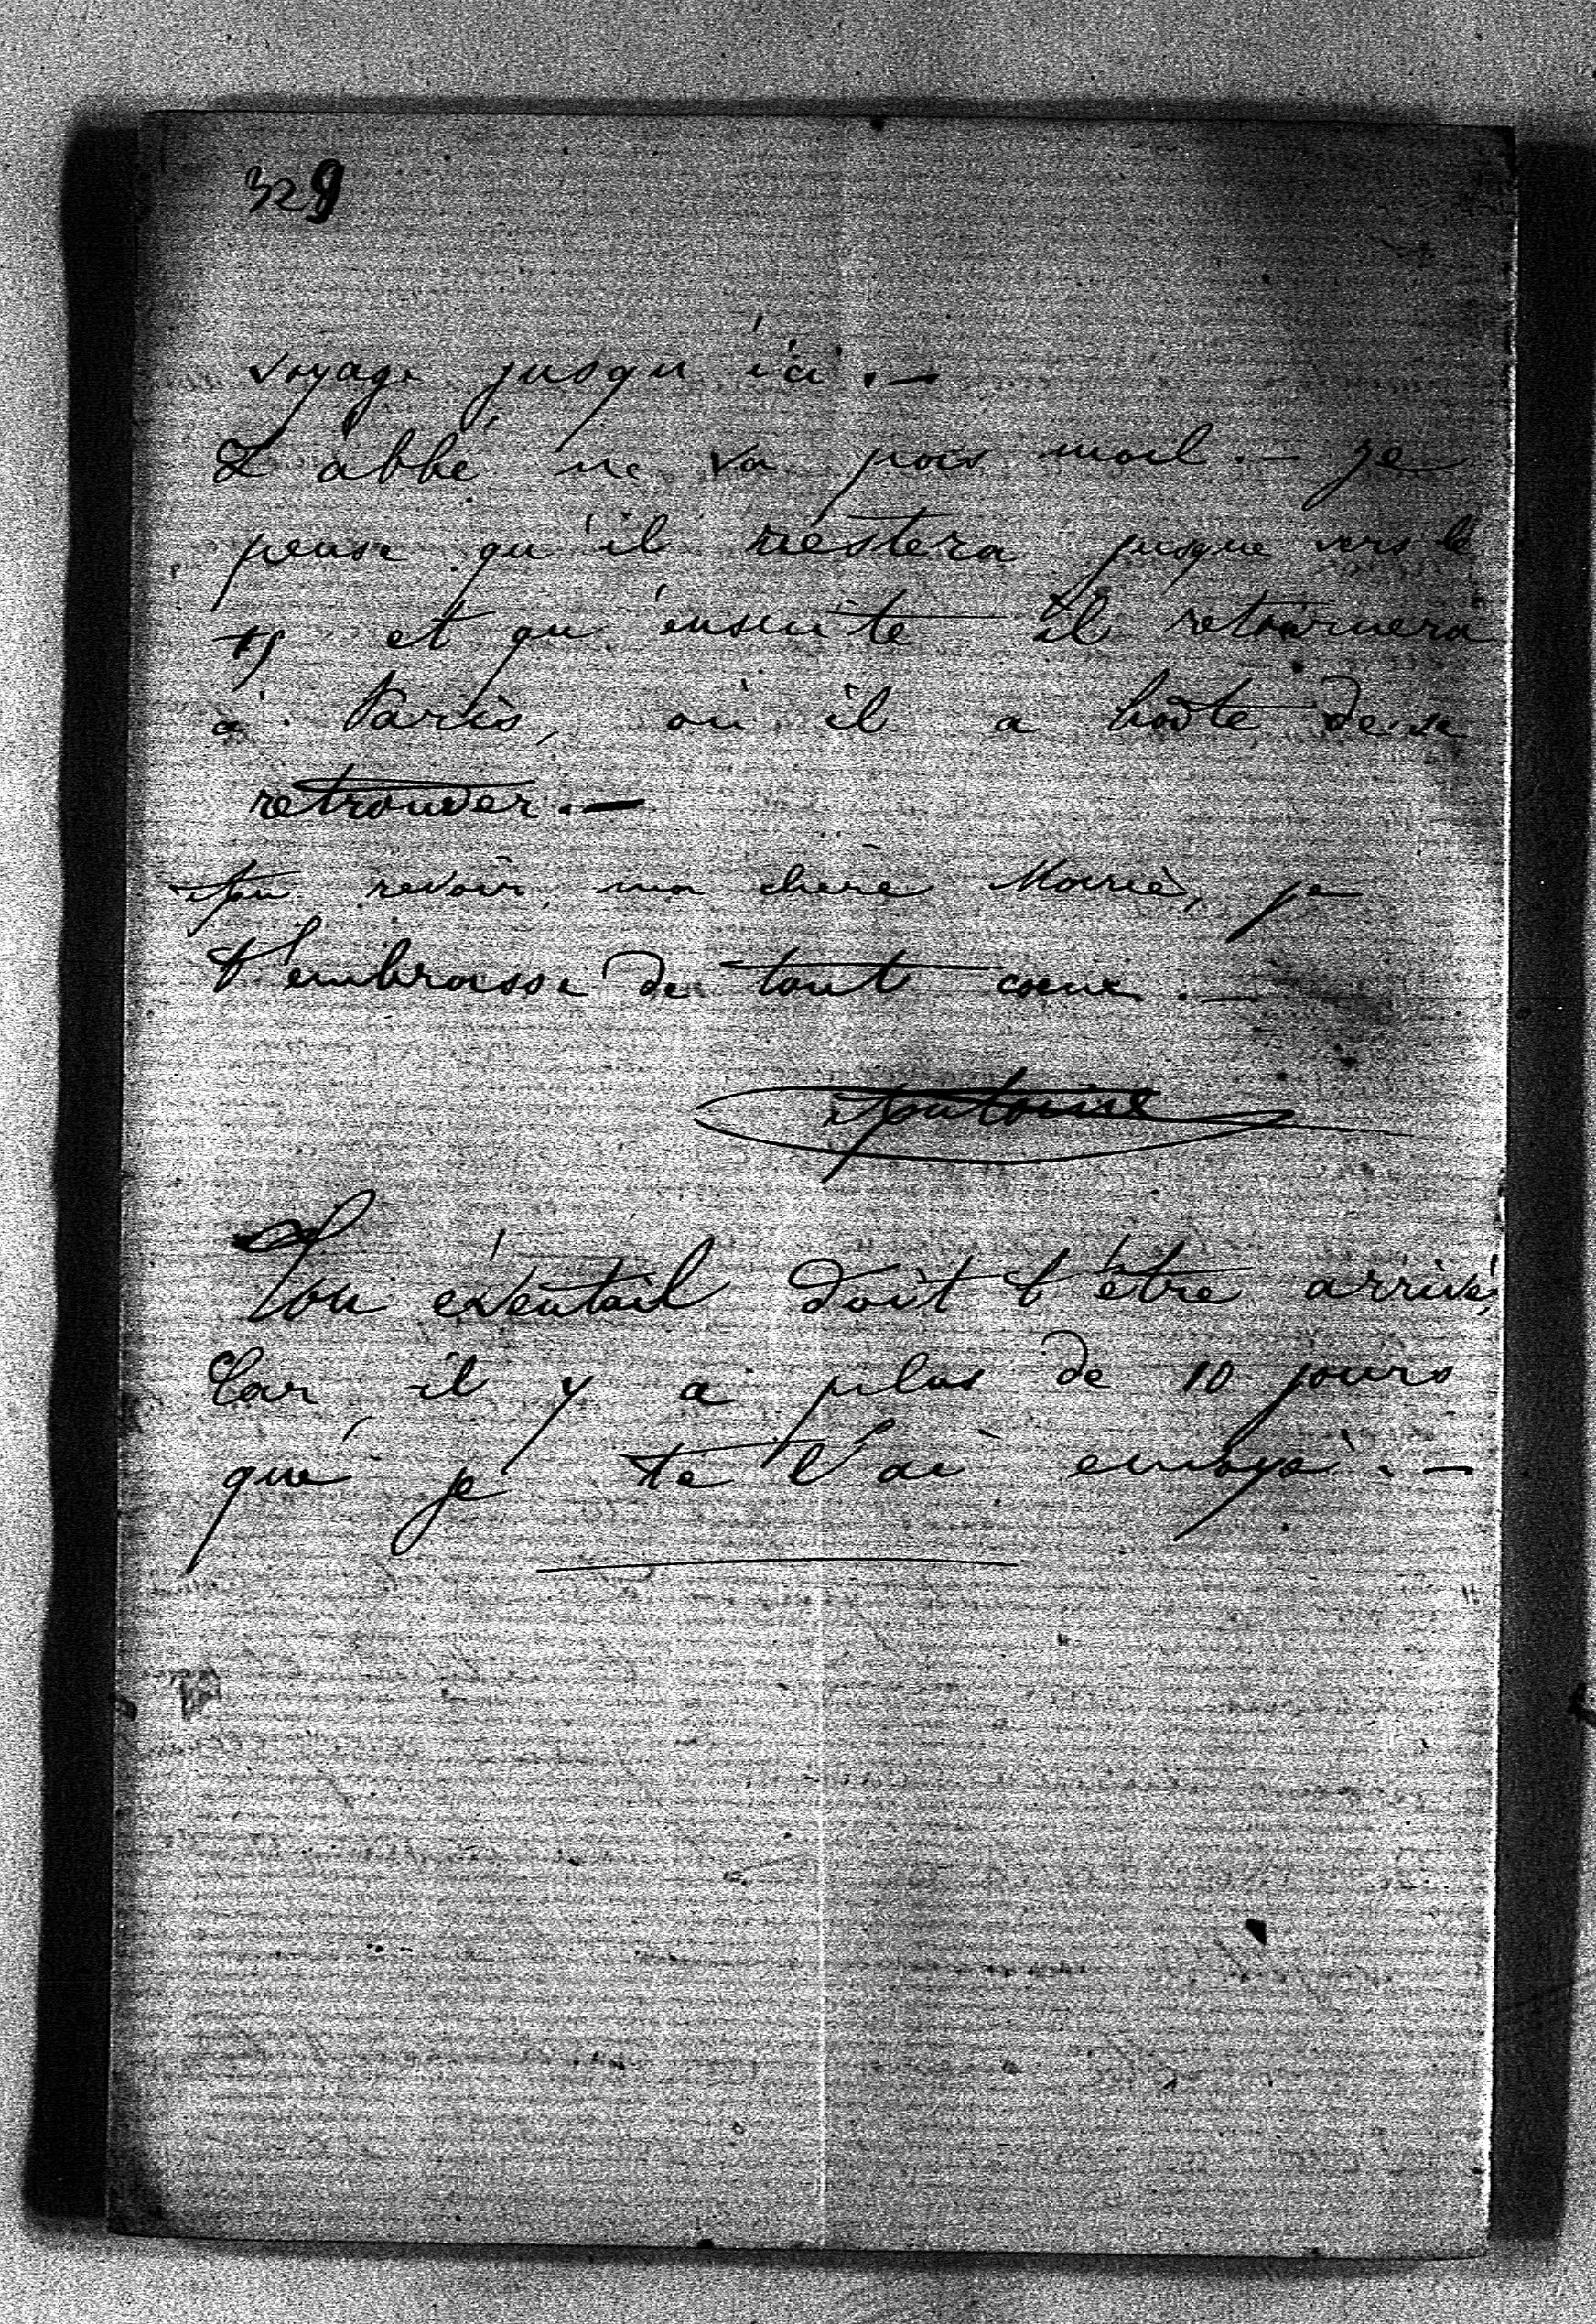 329
voyage jusqu'ici. —
L'abbé ne va pas mal. — Je
pense qu'il restera jusque vers le
15 et qu'ensuite il retournera
à Paris, où il a hâte de se
retrouver. —
Au revoir, ma chère Marie, je
t'embrasse de tout cœur. —
Antoine
Ton éventail doit t'être arrivé,
Car, il y a plus de 10 jours
que je te l'ai envoyé. —